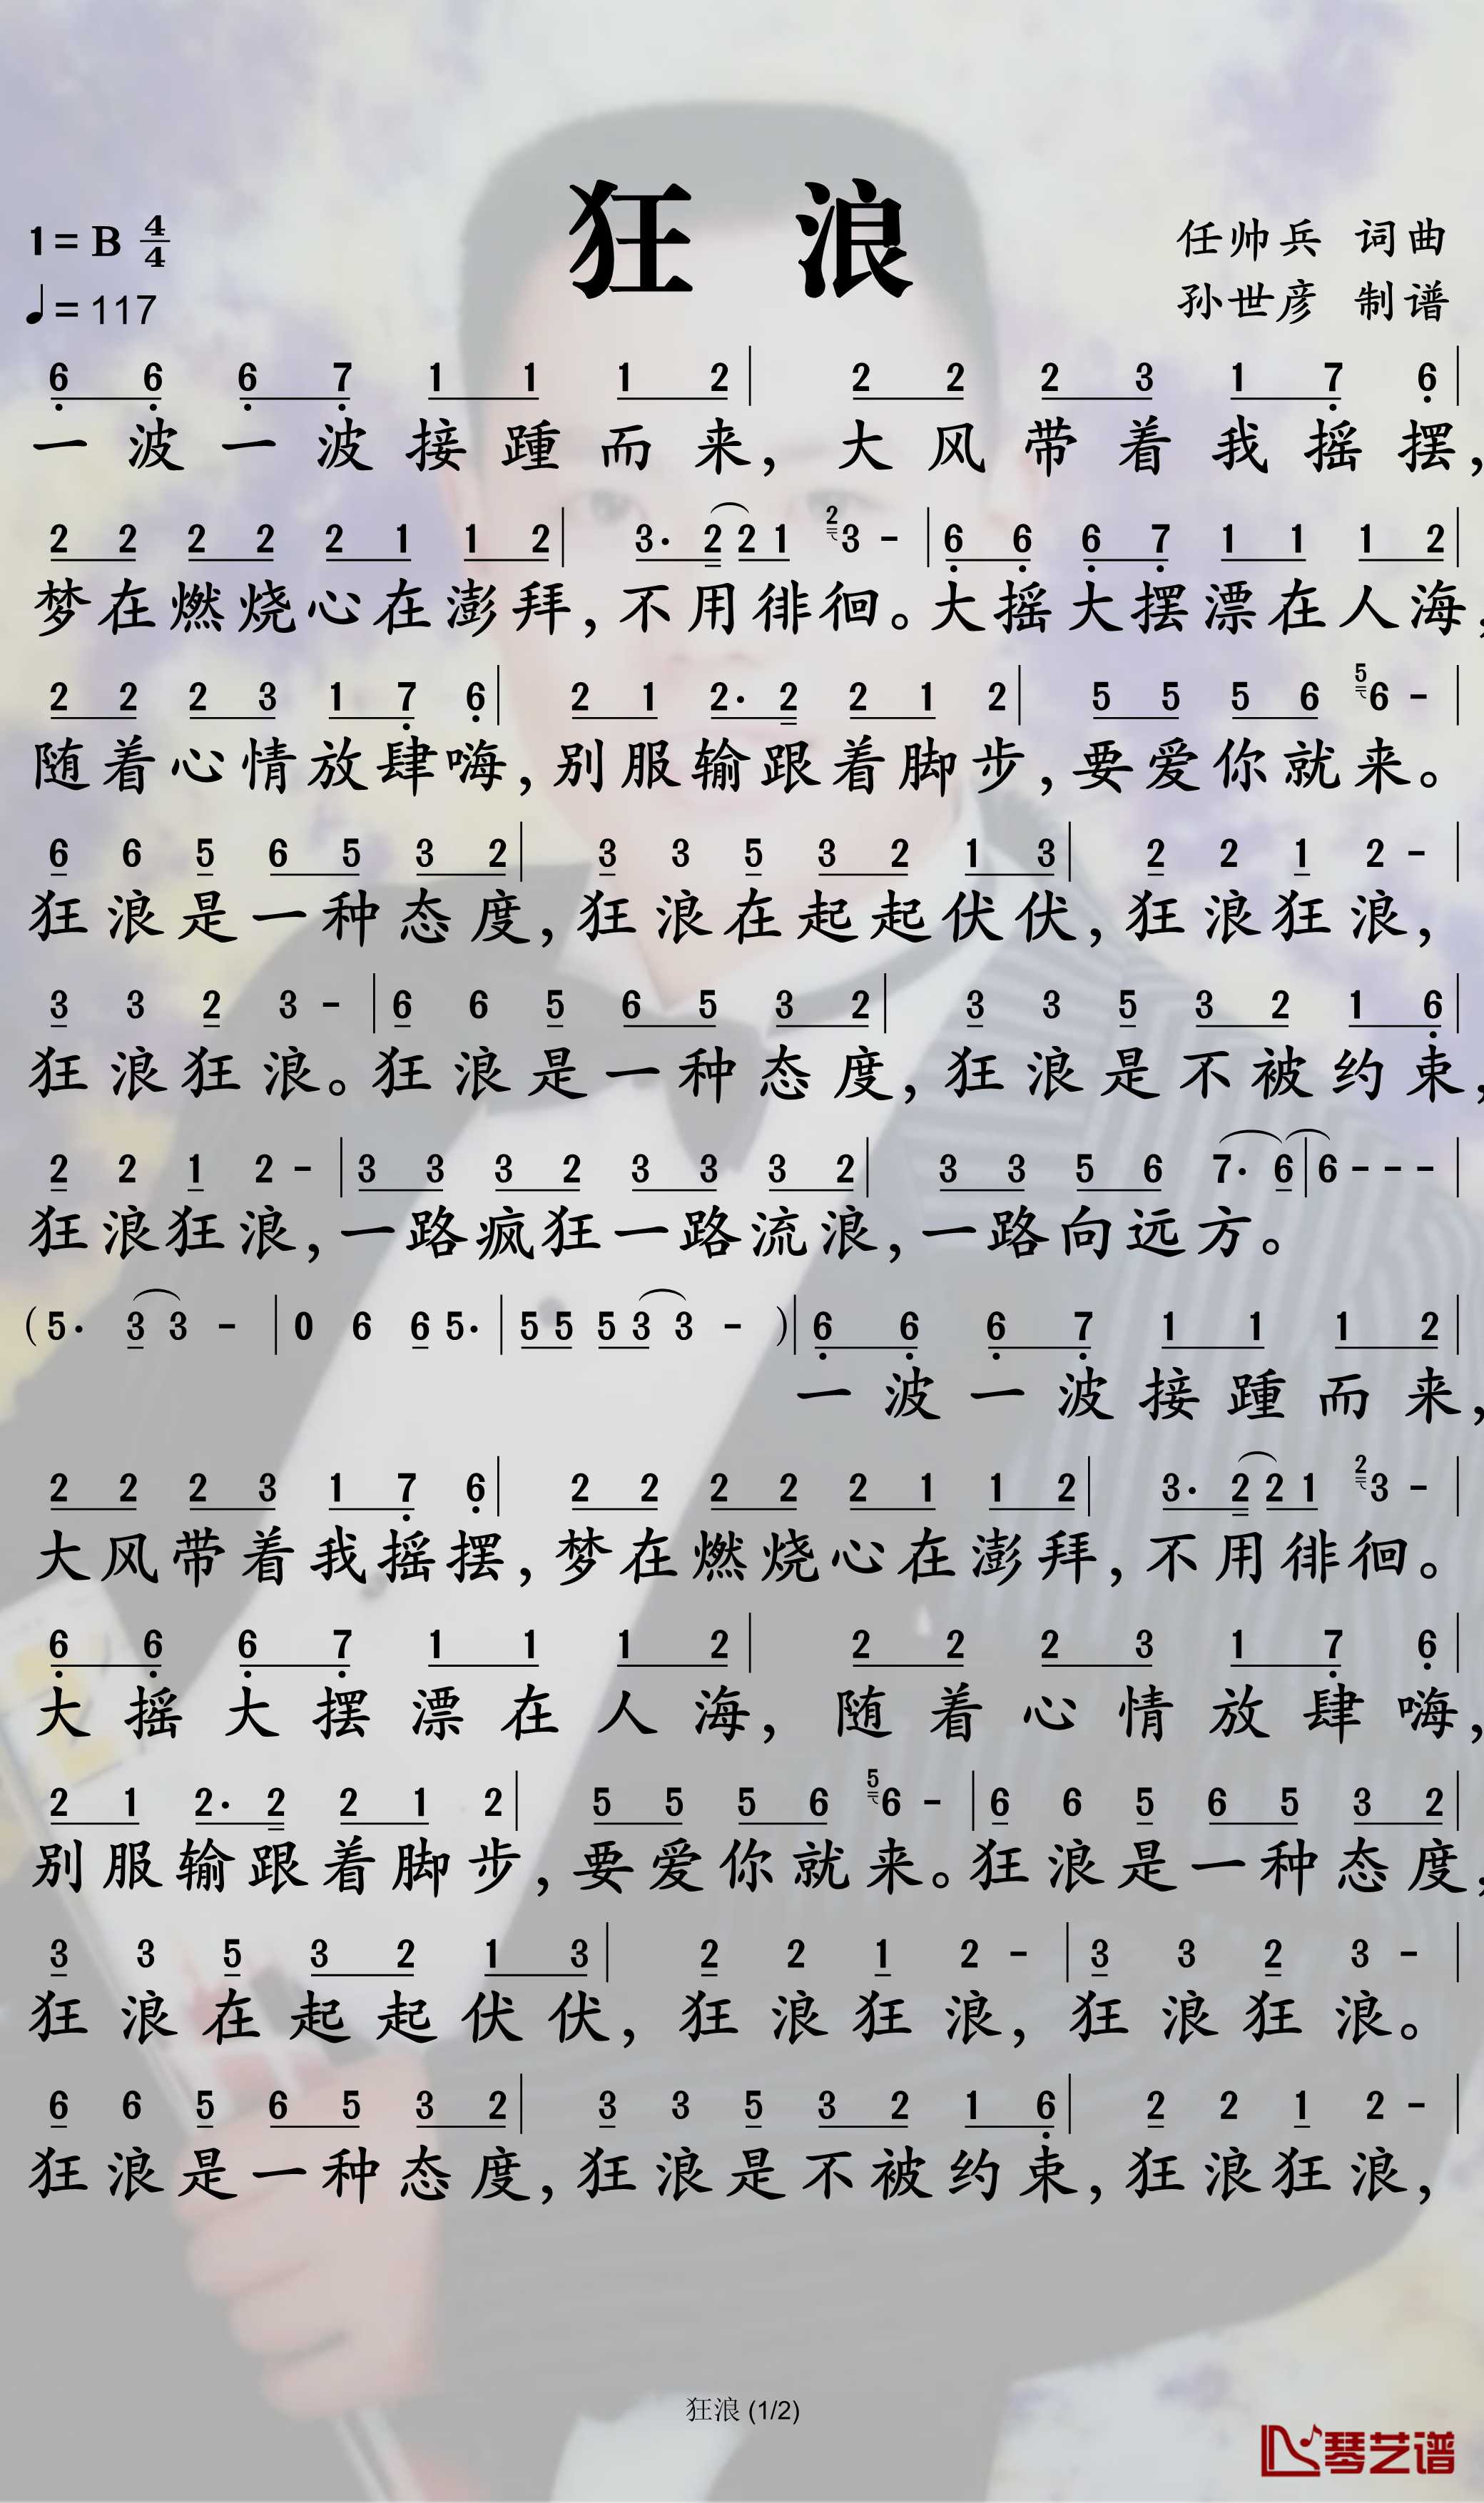 狂 浪
1= B 4/4
♩= 117
任帅兵 词曲
孙世彦 制谱
6 6 6 7 1 1 1 2 | 2 2 2 3 1 7 6 |
一波一波接踵而来，大风带着我摇摆，
2 2 2 2 2 1 1 2 | 3. 2 2 1 2 3 - | 6 6 6 7 1 1 1 2 |
梦在燃烧心在澎拜，不用徘徊。大摇大摆漂在人海，
2 2 2 3 1 7 6 | 2 1 2. 2 2 1 2 | 5 5 5 6 5 6 - |
随着心情放肆嗨，别服输跟着脚步，要爱你就来。
6 6 5 6 5 3 2 | 3 3 5 3 2 1 3 | 2 2 1 2 - |
狂浪是一种态度，狂浪在起起伏伏，狂浪狂浪，
3 3 2 3 - | 6 6 5 6 5 3 2 | 3 3 5 3 2 1 6 |
狂浪狂浪。狂浪是一种态度，狂浪是不被约束，
2 2 1 2 - | 3 3 3 2 3 3 3 2 | 3 3 5 6 7. 6 | 6 - - - |
狂浪狂浪，一路疯狂一路流浪，一路向远方。
( 5. 3 3 - | 0 6 6 5. | 5 5 5 3 3 - ) | 6 6 6 7 1 1 1 2 |
一波一波接踵而来，
2 2 2 3 1 7 6 | 2 2 2 2 2 1 1 2 | 3. 2 2 1 2 3 - |
大风带着我摇摆，梦在燃烧心在澎拜，不用徘徊。
6 6 6 7 1 1 1 2 | 2 2 2 3 1 7 6 |
大摇大摆漂在人海，随着心情放肆嗨，
2 1 2. 2 2 1 2 | 5 5 5 6 5 6 - | 6 6 5 6 5 3 2 |
别服输跟着脚步，要爱你就来。狂浪是一种态度，
3 3 5 3 2 1 3 | 2 2 1 2 - | 3 3 2 3 - |
狂浪在起起伏伏，狂浪狂浪，狂浪狂浪。
6 6 5 6 5 3 2 | 3 3 5 3 2 1 6 | 2 2 1 2 - |
狂浪是一种态度，狂浪是不被约束，狂浪狂浪，
狂浪 (1/2)
琴艺谱